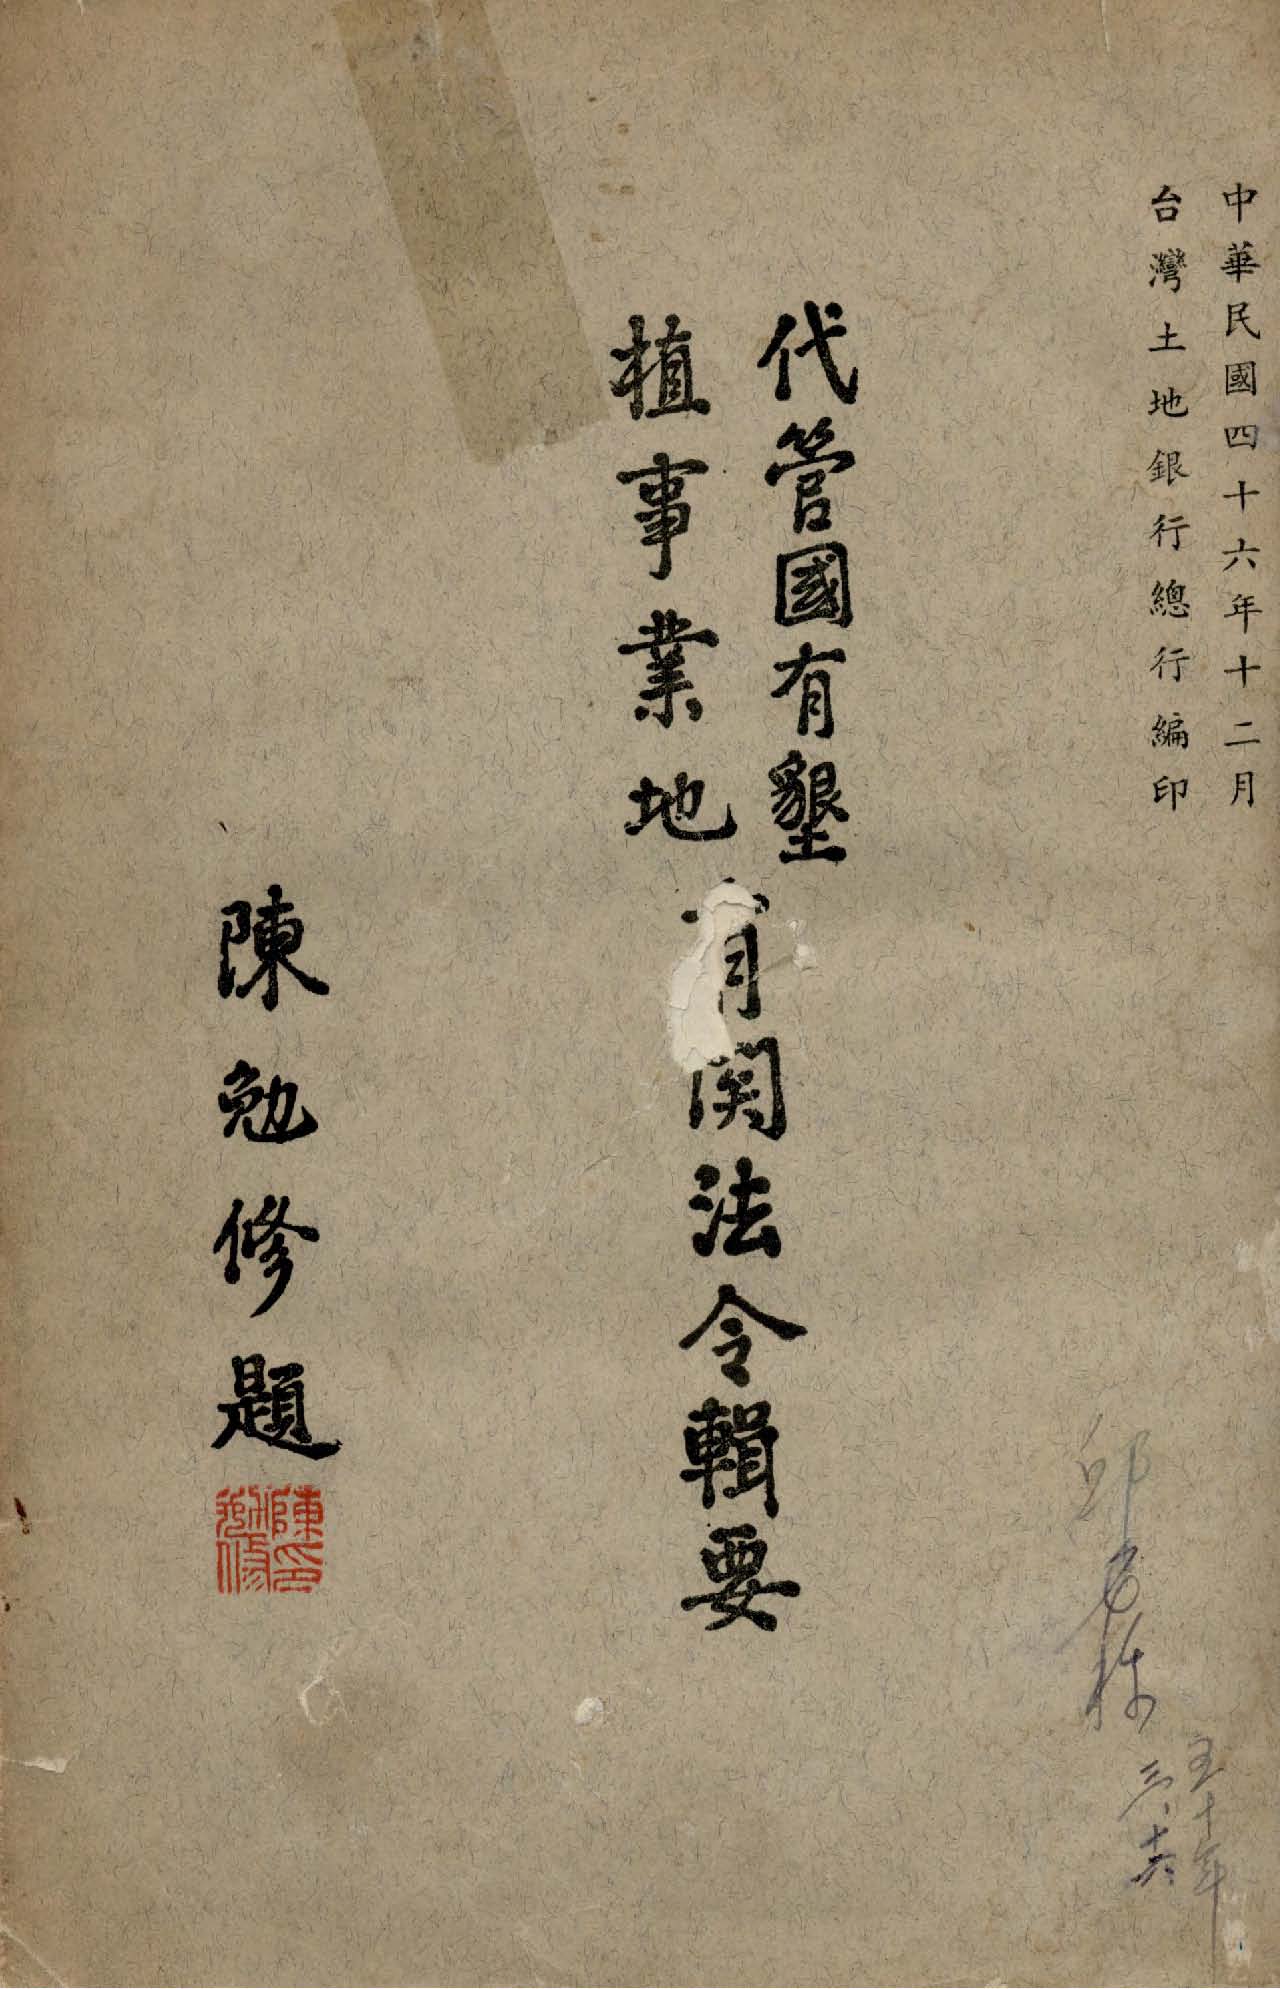 中華民國四十六年十二月
台灣土地銀行總行編印
代管國有墾
植事業地
有関法令輯要
陳勉修題
陳印勉修
邱
五十年